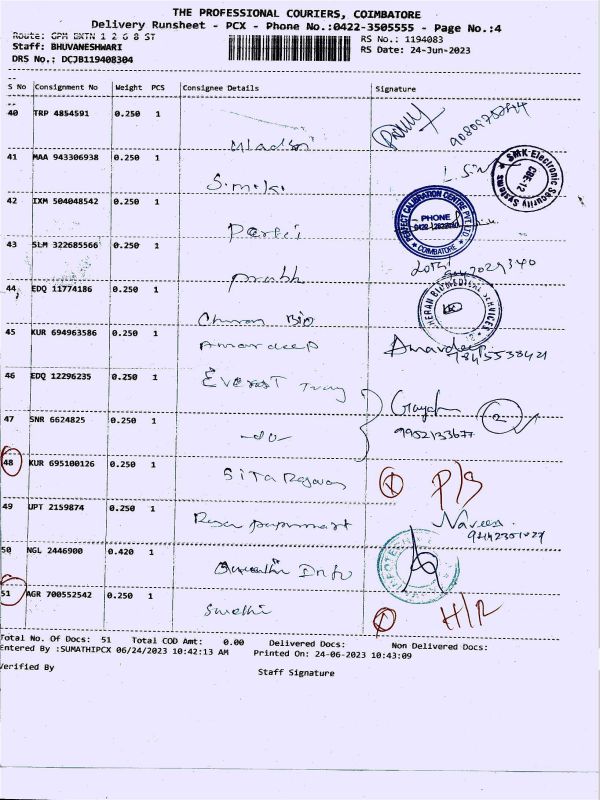 THE PROFESSIONAL COURIERS, COIMBATORE
Delivery Runsheet - PCX - Phone No.:0422-3505555 - Page No.:4
Route: GPM EXTN 1 2 6 8 ST
RS No.: 1194083
Staff: BHUVANESHWARI
RS Date: 24-Jun-2023
DRS No.: DCJB119408304
S No Consignment No Weight PCS Consignee Details Signature
40 TRP 4854591 0.250 1
41 MAA 943306938 0.250 1
SMK Electronic Security System CBE-12
42 IXM 504048542 0.250 1
PERFECT CALIBRATION CENTRE PVT LTD PHONE COIMBATORE
43 SLM 322685566 0.250 1 prabh
44 EDQ 11774186 0.250 1
Charan Bio
45 KUR 694963586 0.250 1 Amardeep Amardeep
46 EDQ 12296235 0.250 1 Everest
47 SNR 6624825 0.250 1 -do-
9952133677
48 KUR 695100126 0.250 1 Sita P/S
49 UPT 2159874 0.250 1 Naveen
50 NGL 2446900 0.420 1
51 AGR 700552542 0.250 1 Swathi H/R
Total No. Of Docs: 51 Total COD Amt: 0.00 Delivered Docs: Non Delivered Docs:
Entered By :SUMATHIPCX 06/24/2023 10:42:13 AM Printed On: 24-06-2023 10:43:09
Verified By Staff Signature